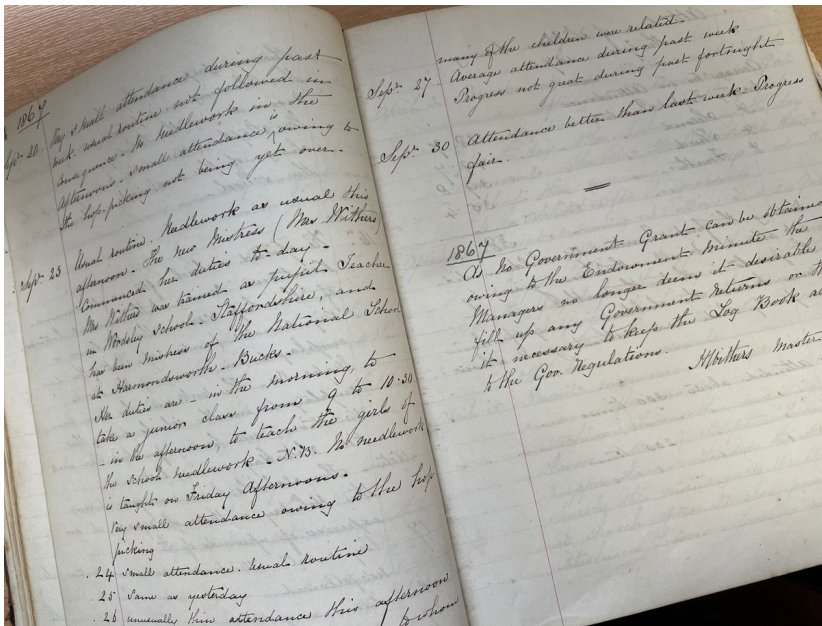 1867
Sept. 20. Very small attendance during past
week. usual routine not followed in
consequence. No needlework in the
afternoon. small attendance is owing to
the hop-picking not being yet over.
Sept. 23 Usual routine. Needlework as usual this
afternoon. The new Mistress (Mrs Withers)
commenced her duties to-day.
Mrs Withers was trained as pupil Teacher
in Wordsley Schools. Staffordshire, and
has been Mistress of the National School
at Harmondsworth. Bucks.
Her duties are - in the morning, to
take a junior class from 9 to 10.30
- in the afternoon, to teach the girls of
the school needlework. N.B. No needlework
is taught on Friday Afternoons.
Very small attendance owing to the hop
picking
. 24 small attendance. Usual routine
25 same as yesterday
. 26 unusually thin attendance this afternoon
to whom
many of the children were related.
Sept. 27 Average attendance during past week
Progress not great during past fortnight
Sept. 30 Attendance better than last week. Progress
fair.
1867
As No Government Grant can be obtained
owing to the Endowment Minute the
Managers no longer deem it desirable
fill up any Government Returns or th
it necessary to keep the Log Book ac
to the Gov. Regulations.
Withers Master